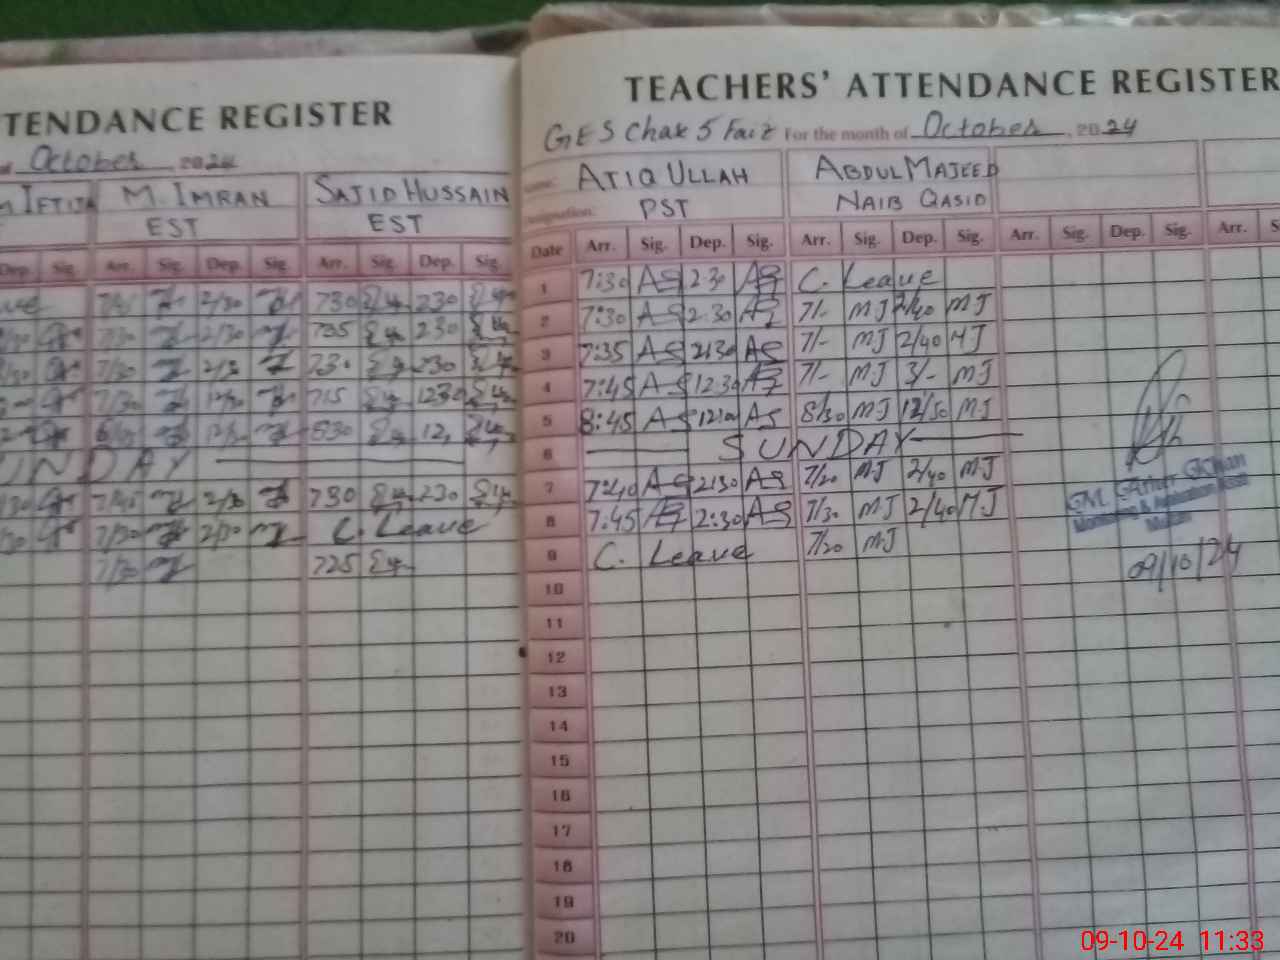 TENDANCE REGISTER
October, 2024
M IFTIJA M. IMRAN SAJID HUSSAIN
EST EST
Dep. Sig. Arr. Sig. Dep. Sig. Arr. Sig. Dep. Sig.
2/30 730 230
7/30 2/30 735 230
7/30 2/3 730 230
7/30 12/30 715 1230
830 12
UN DAY
7/45 2/30 730 230
7/30 2/30 C. Leave
7/30 725
TEACHERS' ATTENDANCE REGISTER
GES Chak 5 Faiz For the month of October, 2024
Name: ATIQ ULLAH ABDUL MAJEED
Designation: PST NAIB QASID
Date Arr. Sig. Dep. Sig. Arr. Sig. Dep. Sig. Arr. Sig. Dep. Sig. Arr. S
1 7:30 AS 2 30 AS C. Leave
2 7:30 AS 2.30 AS 7/- MJ 2/40 MJ
3 7:35 AS 2130 AS 7/- MJ 2/40 MJ
4 7:45 AS 12.30 AS 7/- MJ 3/- MJ
5 8:45 AS AS 8/30 MJ 12/50 MJ
6 SUNDAY
7 7:40 AS 2130 AS 7/20 MJ 2/40 MJ
8 7:45 AS 2:30 AS 7/30 MJ 2/40 MJ
9 C. Leave 7/20 MJ
10
11
12
13
14
15
16
17
18
19
20
Monitoring & Assistant
09/10/24
09-10-24 11:33